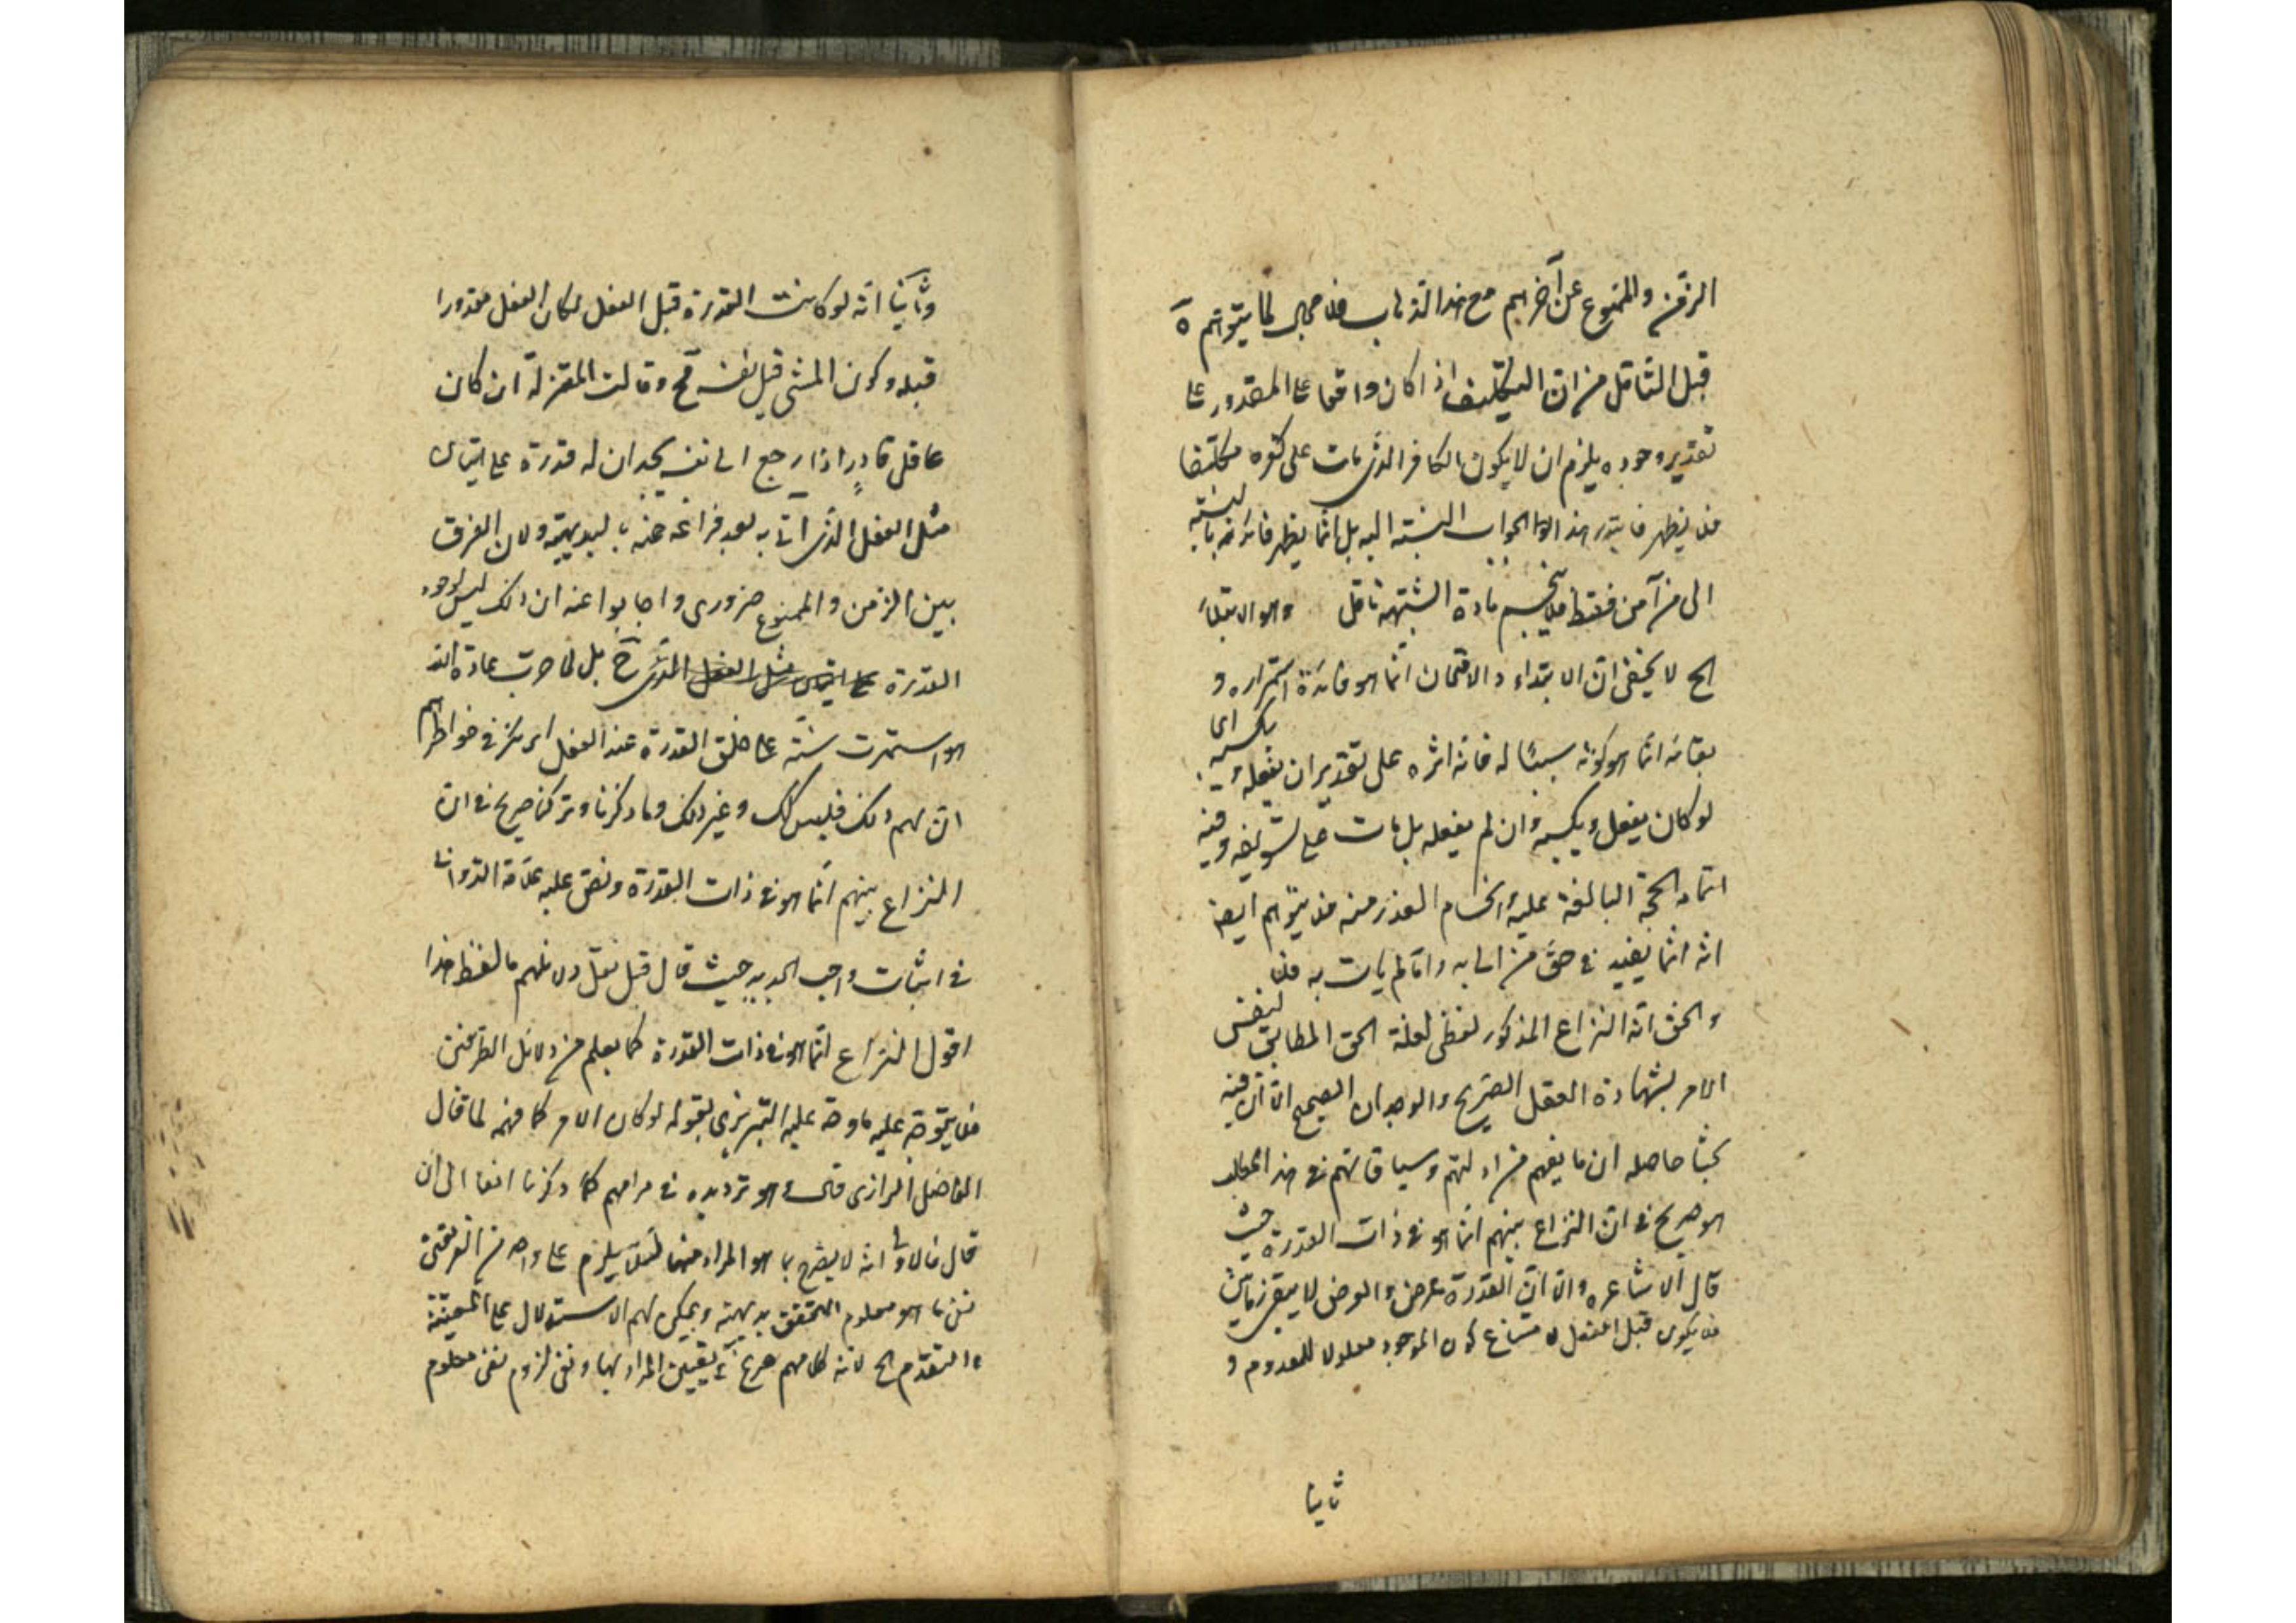 الزمن والممنوع عن آخرهم مع هذا الذهاب فلا مجال لما يتوهم
قبل التأمل من ان التكليف اذا كان واقعا على المقدور على
تقدير وجوده يلزم ان لا يكون الكافر الذى مات على كفره مكلفا
فلا يظهر فايدة هذا الجواب بالنسبة اليه بل انما يظهر فائدته بالنسبة
الى من آمن فقط فلا ينحسم مادة الشبهة تأمل والابتلاء
الخ لا يخفى ان الابتداء والامتحان انما هو فائدة استمراره و
بقائه انما هو كونه سببا له فانه اثره على تقدير ان يفعله
لو كان يفعل ويكسبه وان لم يفعله بل مات على وفيه
اتمام الحجة البالغة عليه وانحسام العذر منه فلا يتوهم ايضا
انه انما يفيد فى حق من اتى به واما لم يأت به فلا
والحق ان النزاع المذكور لفظى لعلة الحق المطابق لنفس
الامر بشهادة العقل الصريح والوجدان الصحيح الا ان فيه
بحثا حاصله ان ما يفهم من ادلتهم وسياقاتهم فى هذا المطلب
هو صريح فى ان النزاع بينهم انما هو فى ذات القدرة حيث
قال الاشاعره ان القدرة عرض والعرض لا يبقى زمانين
فلا يكون قبل الفعل لامتناع كون الموجود معلولا للمعدوم و
ثانيا
وثانيا انه لو كانت القدرة قبل الفعل لكان الفعل مقدورا
قبله وكون المشى قبل نفسه مح وقالت المعتزلة ان كان
عاقل قادر اذا رجع الى نفسه يجد ان له قدرة على اتيان
مثل الفعل الذى اتى به بعد فراغه عنه بالبديهة ولان الفرق
بين الزمن والممنوع ضرورى واجابوا عنه ان ذلك ليس لوجود
القدرة على اتيان مثل الفعل الذى ح بل لما جرت عادة الله
واستمرت سنته على خلق القدرة عند الفعل ارتكز فى خواطرهم
ان لهم ذلك فليس كك وغير ذلك وما ذكرنا وتركنا صريح فى ان
النزاع بينهم انما هو فى ذات القدرة ونص عليه علامة الدوانى
فى اثبات واجب الجديد حيث قال قبل نقل دلائلهم ما لفظه هذا
اقول النزاع انما هو فى ذات القدرة كما يعلم من دلائل الطرفين
فلا يتوجه عليه ما وجه عليه التبريزى بقوله لو كان الامر كما فهمه لما قال
الفاضل الرازى فى ترديده فى مرامهم كما ذكرنا انفا الى ان
قال فالاولى انه لا يصرح بما هو المراد منها لئلا يلزم على واحد من الفريقين
نفى ما هو معلوم التحقق بديهة ويمكن لهم الاستدلال على المعية
والتقدم الخ لانه كلامهم صريح فى تعيين المراد بها ونفى لزوم نفى معلوم